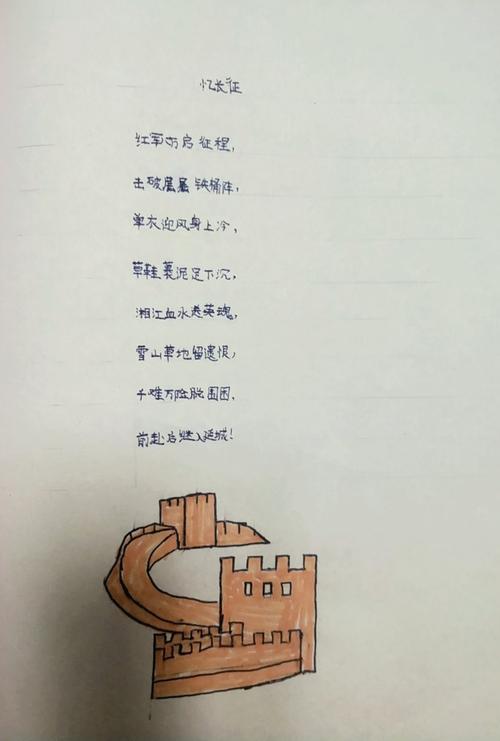 忆长征
红军方启征程，
击破层层铁桶阵，
单衣迎风身上冷，
草鞋裹泥足下沉，
湘江血水卷英魂。
雪山草地留遗恨，
千难万险脱围困，
前赴后继入延城！